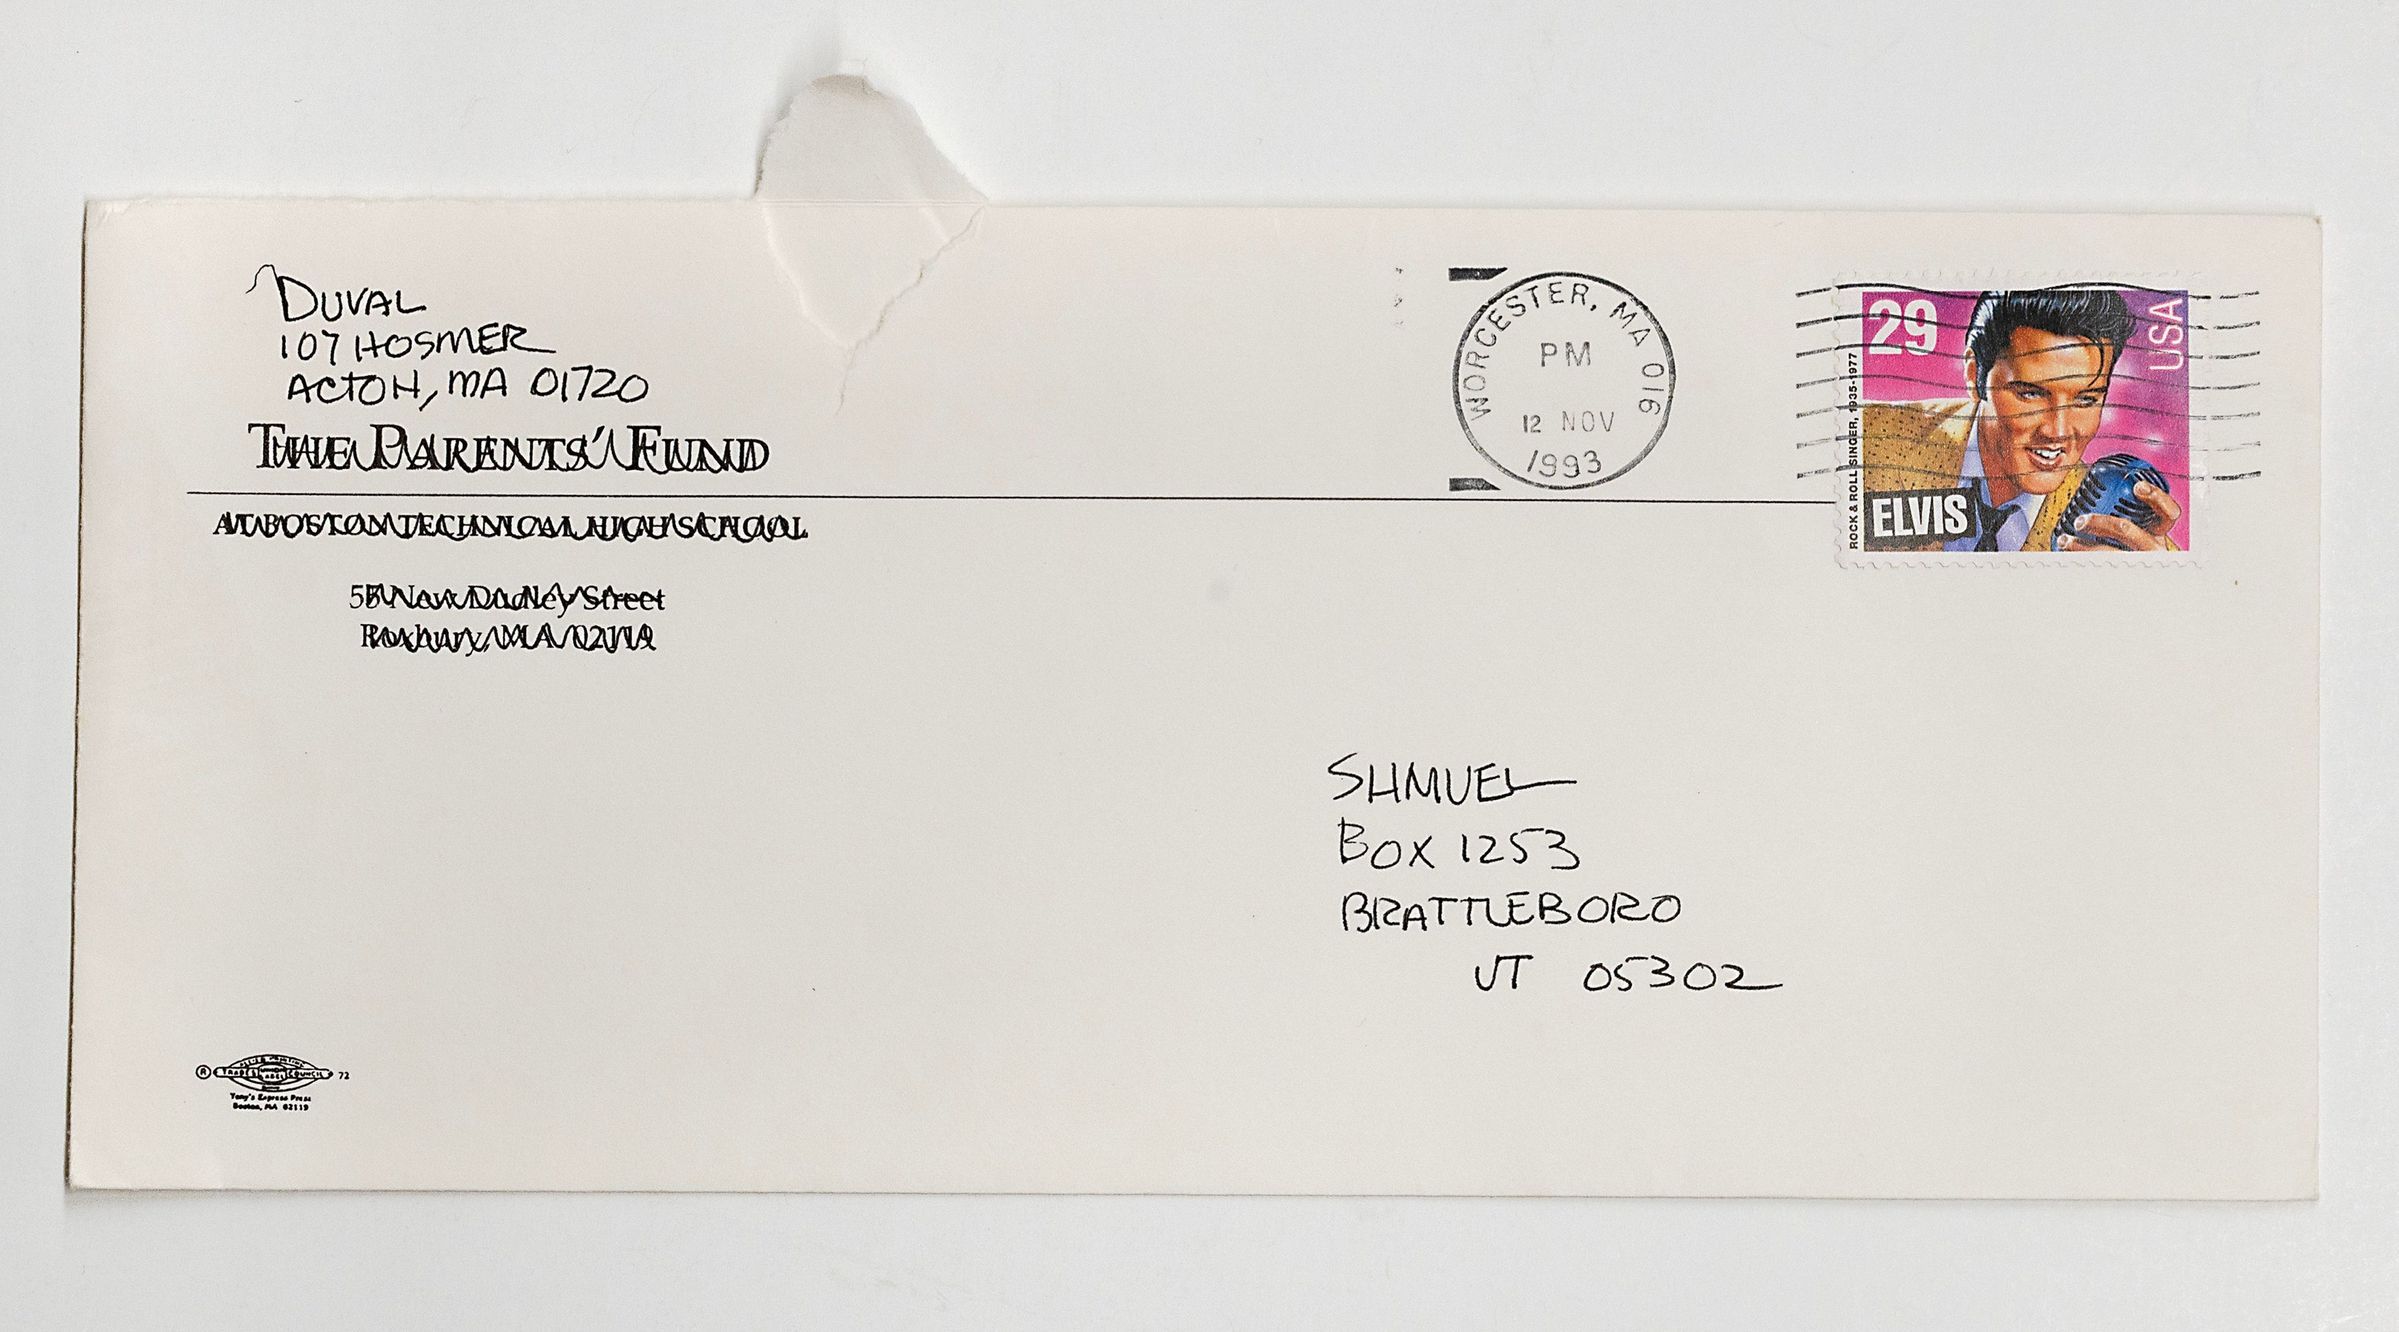 DUVAL
107 HOSMER
ACTON, MA 01720
THE PARENTS' FUND
AT BOSTON TECHNICAL HIGH SCHOOL
55 New Dudley Street
Roxbury, MA 02119
WORCESTER, MA 016
PM
12 NOV
1993
29
USA
ROCK & ROLL SINGER, 1935-1977
ELVIS
SHMUEL
BOX 1253
BRATTLEBORO
VT 05302
ALLIED PRINTING
® TRADES UNION LABEL COUNCIL 72
Tony's Express Press
Boston, MA 02119